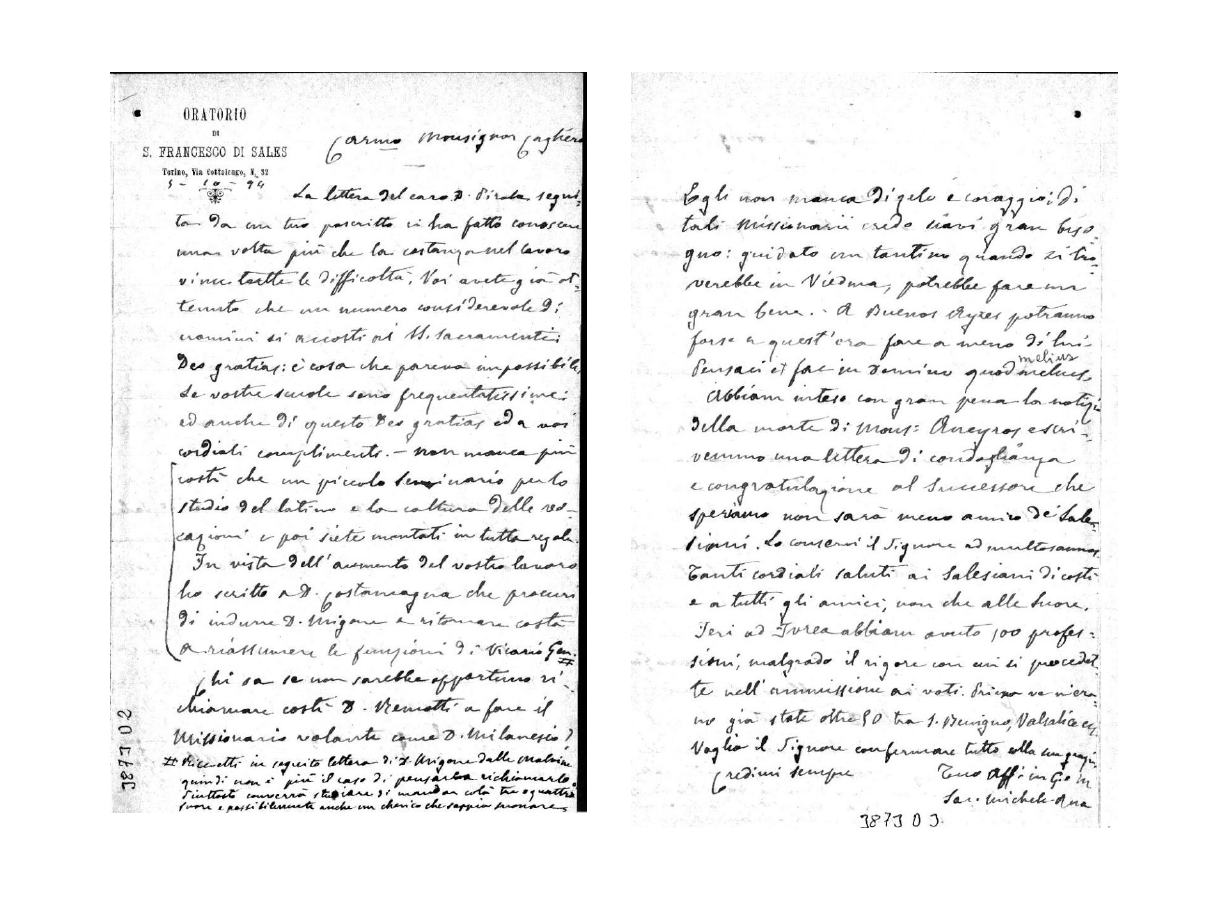 ORATORIO
DI
S. FRANCESCO DI SALES
Torino, Via Cottolengo, N. 32
5 - 10 - 94
Carmo Monsignor Cagliero
La lettera del caro D. segui-
ta da un tuo poscritto ci ha fatto conoscere
una volta più che la costanza nel lavoro
vince tutte le difficoltà. Voi avete già ot-
tenuto che un numero considerevole di
uomini si accosti ai SS. Sacramenti:
Deo gratias: è cosa che pareva impossibile,
Le vostre scuole sono frequentatissime:
ed anche di questo Deo gratias ed a voi
cordiali complimenti. - Non manca più
costì che un piccolo seminario per lo
studio del latino e la coltura delle vo-
cazioni e poi siete montati in tutta regola.
In vista dell'aumento del vostro lavoro
ho scritto a D. Costamagna che procuri
di indurre D. Migone a ritornare costà
a riassumere le funzioni di Vicario Gen.
Chi sa se non sarebbe opportuno ri-
chiamare costì D. Remotti a fare il
Missionario volante come D. Milanesio?
# Ricevetti in seguito lettera di D. Migone dalle Malvine
quindi non è più il caso di pensar a richiamarlo.
Piuttosto converrà studiare di mandar colà tre o quattro
suore e possibilmente anche un chierico che sappia suonare.
387302
Egli non manca di zelo e coraggio; di
tali Missionarii credo siavi gran biso-
gno: guidato un tantino quando si tro-
verebbe in Viedma, potrebbe fare un
gran bene. - A Buenos Ayres potranno
forse a quest'ora fare a meno di lui.
Pensaci et fac in Domino quod melius
melius.
Abbiam inteso con gran pena la notizia
della morte di Mons: Aneyros e scri-
vemmo una lettera di condoglianza
e congratulazione al Successore che
speriamo non sarà meno amico de' Sale-
siani. Lo conservi il Signore ad multos annos.
Tanti cordiali saluti ai Salesiani di costì
e a tutti gli amici, non che alle Suore.
Ieri ad Ivrea abbiam avuto 100 profes-
sioni, malgrado il rigore con cui si procedet-
te nell'ammissione ai voti. Prima ve n'era-
no già state oltre 50 tra S. Benigno, Valsalice ec.
Voglia il Signore confermare tutto colla sua grazia
Credimi sempre Tuo Aff in G e M
Sac. Michele Rua
387303